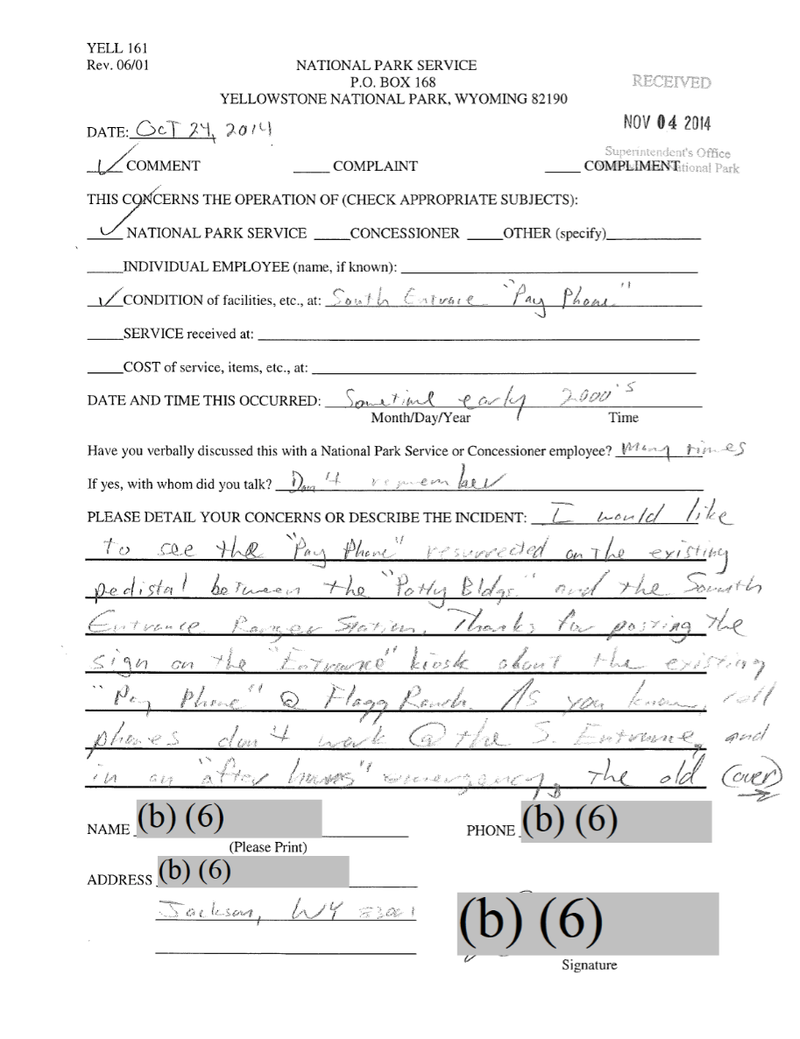 YELL 161
Rev. 06/01
NATIONAL PARK SERVICE
P.O. BOX 168
YELLOWSTONE NATIONAL PARK, WYOMING 82190
RECEIVED
NOV 04 2014
Superintendent's Office
DATE: Oct 24, 2014
✓ COMMENT ____ COMPLAINT ____ COMPLIMENT
THIS CONCERNS THE OPERATION OF (CHECK APPROPRIATE SUBJECTS):
✓ NATIONAL PARK SERVICE ____CONCESSIONER ____OTHER (specify)____
____INDIVIDUAL EMPLOYEE (name, if known): ____
✓ CONDITION of facilities, etc., at: South Entrace "Pay Phone"
____SERVICE received at: ____
____COST of service, items, etc., at: ____
DATE AND TIME THIS OCCURRED: Sometime early 2000's
Month/Day/Year Time
Have you verbally discussed this with a National Park Service or Concessioner employee? Many times
If yes, with whom did you talk? Don't remember
PLEASE DETAIL YOUR CONCERNS OR DESCRIBE THE INCIDENT: I would like
to see the "Pay Phone" resurrected on the existing
pedistal between the "Potty Bldgs." and the South
Entrance Ranger Station. Thanks for posting the
sign on the "Entrance" kiosk about the existing
"Pay Phone" @ Flagg Ranch. As you know, cell
phones don't work @ the S. Entrance, and
in an "after hours" emergency, the old (over)
NAME (b) (6) PHONE (b) (6)
(Please Print)
ADDRESS (b) (6)
Jackson, WY 83001
(b) (6)
Signature